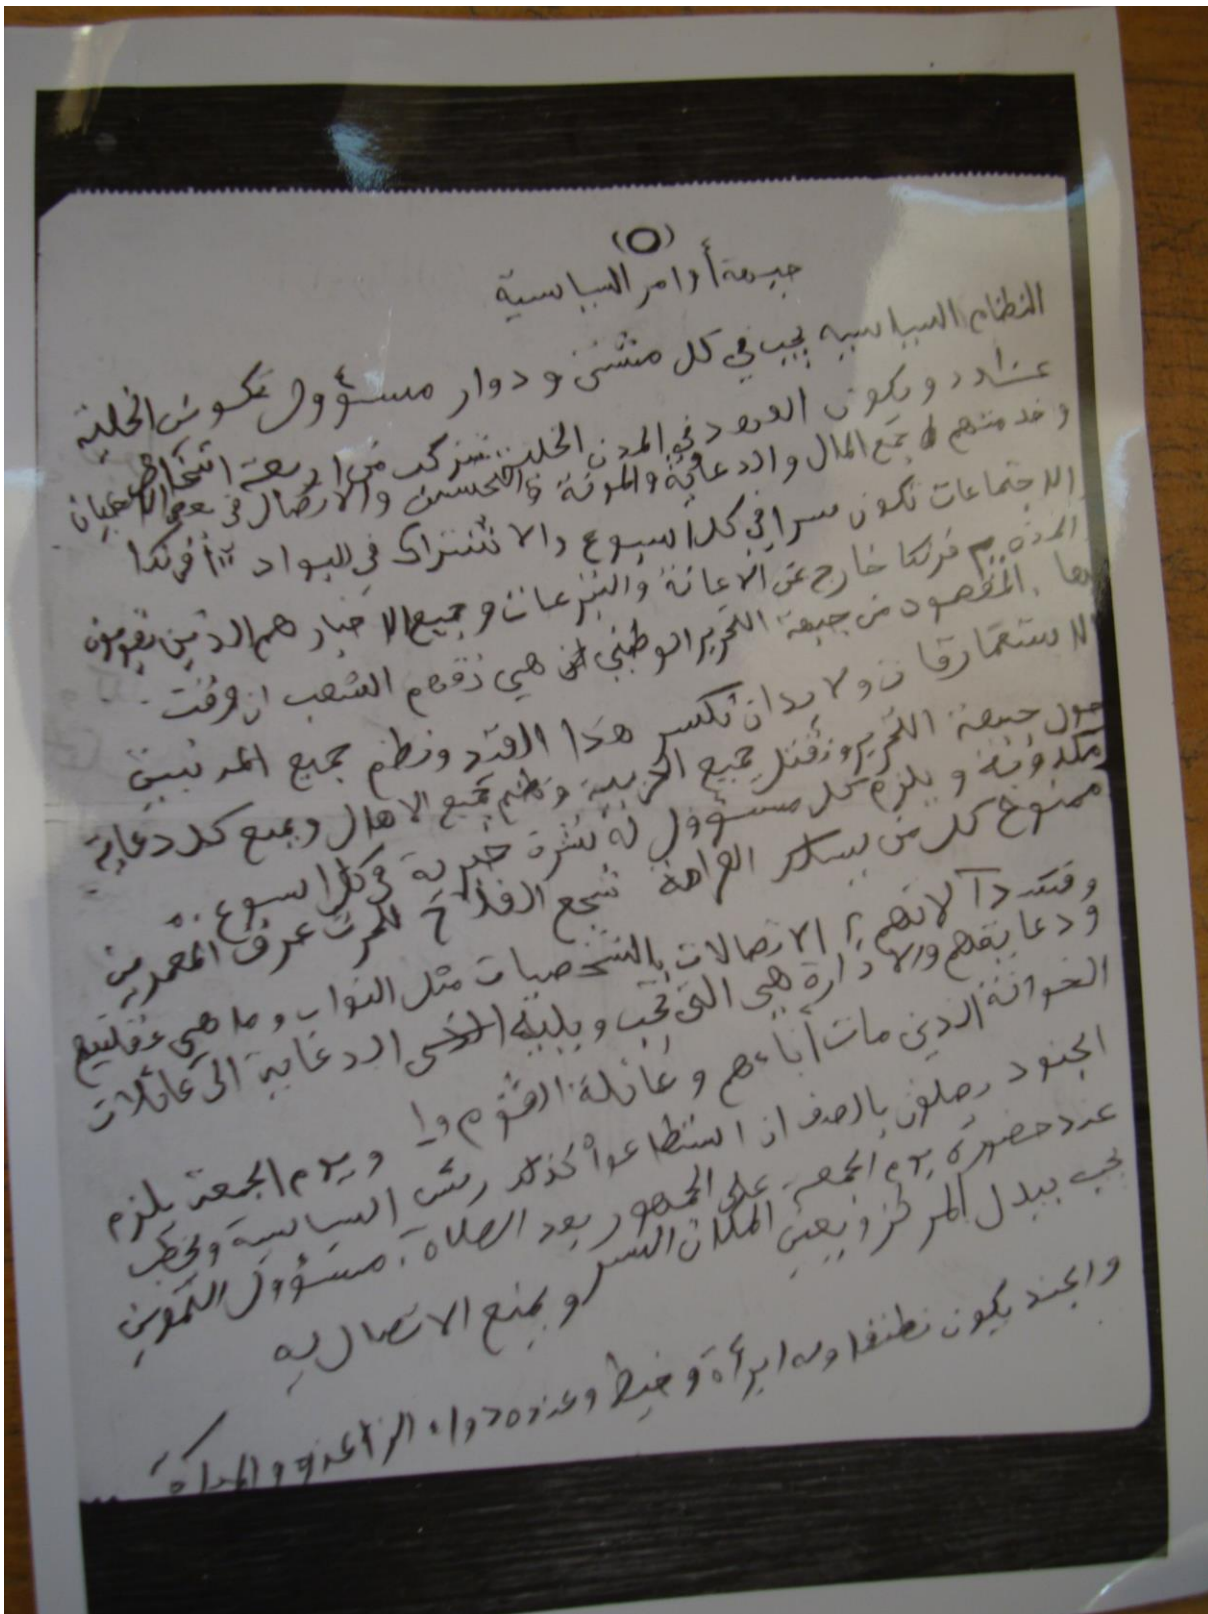 (O)
جبهة أوامر السياسية
النظام السياسيه يجب في كل مشتى و دوار مسؤول تكون الخلية
و يكون العدد في المدن الخلية تتركب من اربعة اشخاص
و خدمتهم جمع المال والدعاية والمونة والتحسس والاتصال في بعض الاحيان
الاجتماعات تكون سرا في كل اسبوع والاشتراك في البواد فرنكا
المدن فرنكا خارج عن الاعانة والتبرعات و جميع الاخبار هم الذين يقومون
بها. المقصود من جبهة التحرير الوطني هي تفهم الشعب ان
الاستعمار ولابد ان تكسر هذا القيد ونظم جميع المدنيين
حول جبهة التحرير ونقتل جميع الحزبية و نظم جميع الاهال و يمنع كل دعاية
مكذوبة و يلزم كل مسؤول له نشرة خبرية في كل اسبوع..
ممنوع كل من الغرامة شجع الفلاح للحرث عرف المعمرين
آلاتهم الاتصالات بالشخصيات مثل النواب و ما هي عقليتهم
ودعايتهم والادارة هي التي تجب الدعاية الى عائلات
الخوانة الذين مات أباءهم و عائلة القوم و يوم الجمعة يلزم
الجنود يصلون بالصف ان استطاعوا كذلك السياسية ويخطب
عند حضوره يوم الجمعة على الجمهور بعد الصلاة. مسؤول التموين
يجب يبدل المركز و المكان السر و يمنع الاتصال به
والجند يكون نظيفا وله ابرأة و خيط وعنده دواء